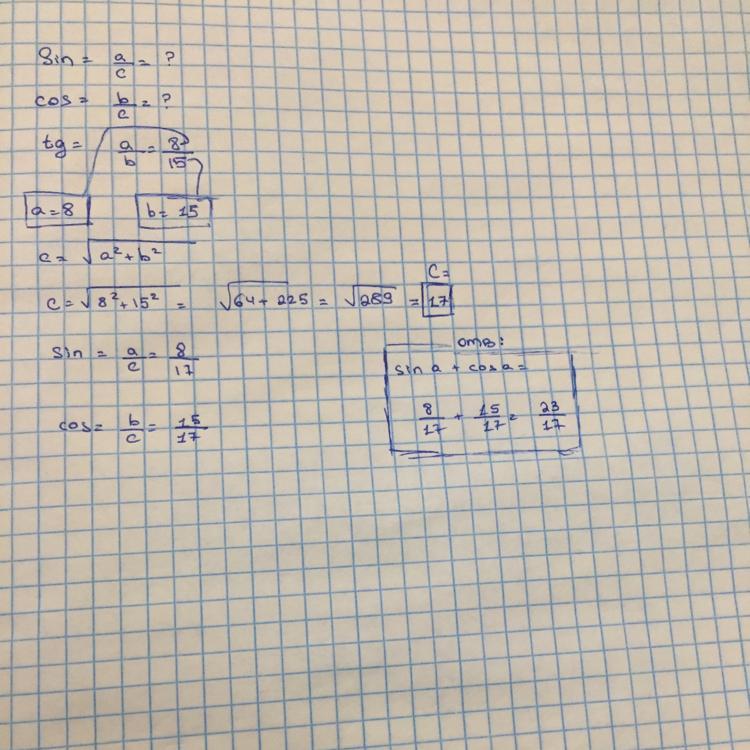 Sin = a/c = ?
cos = b/c = ?
tg = a/b = 8/15
a = 8 b = 15
c = √a² + b²
c = √8² + 15² = √64 + 225 = √289 = 17
C =
sin = a/c = 8/17
cos = b/c = 15/17
отв:
sin a + cos a =
8/17 + 15/17 = 23/17